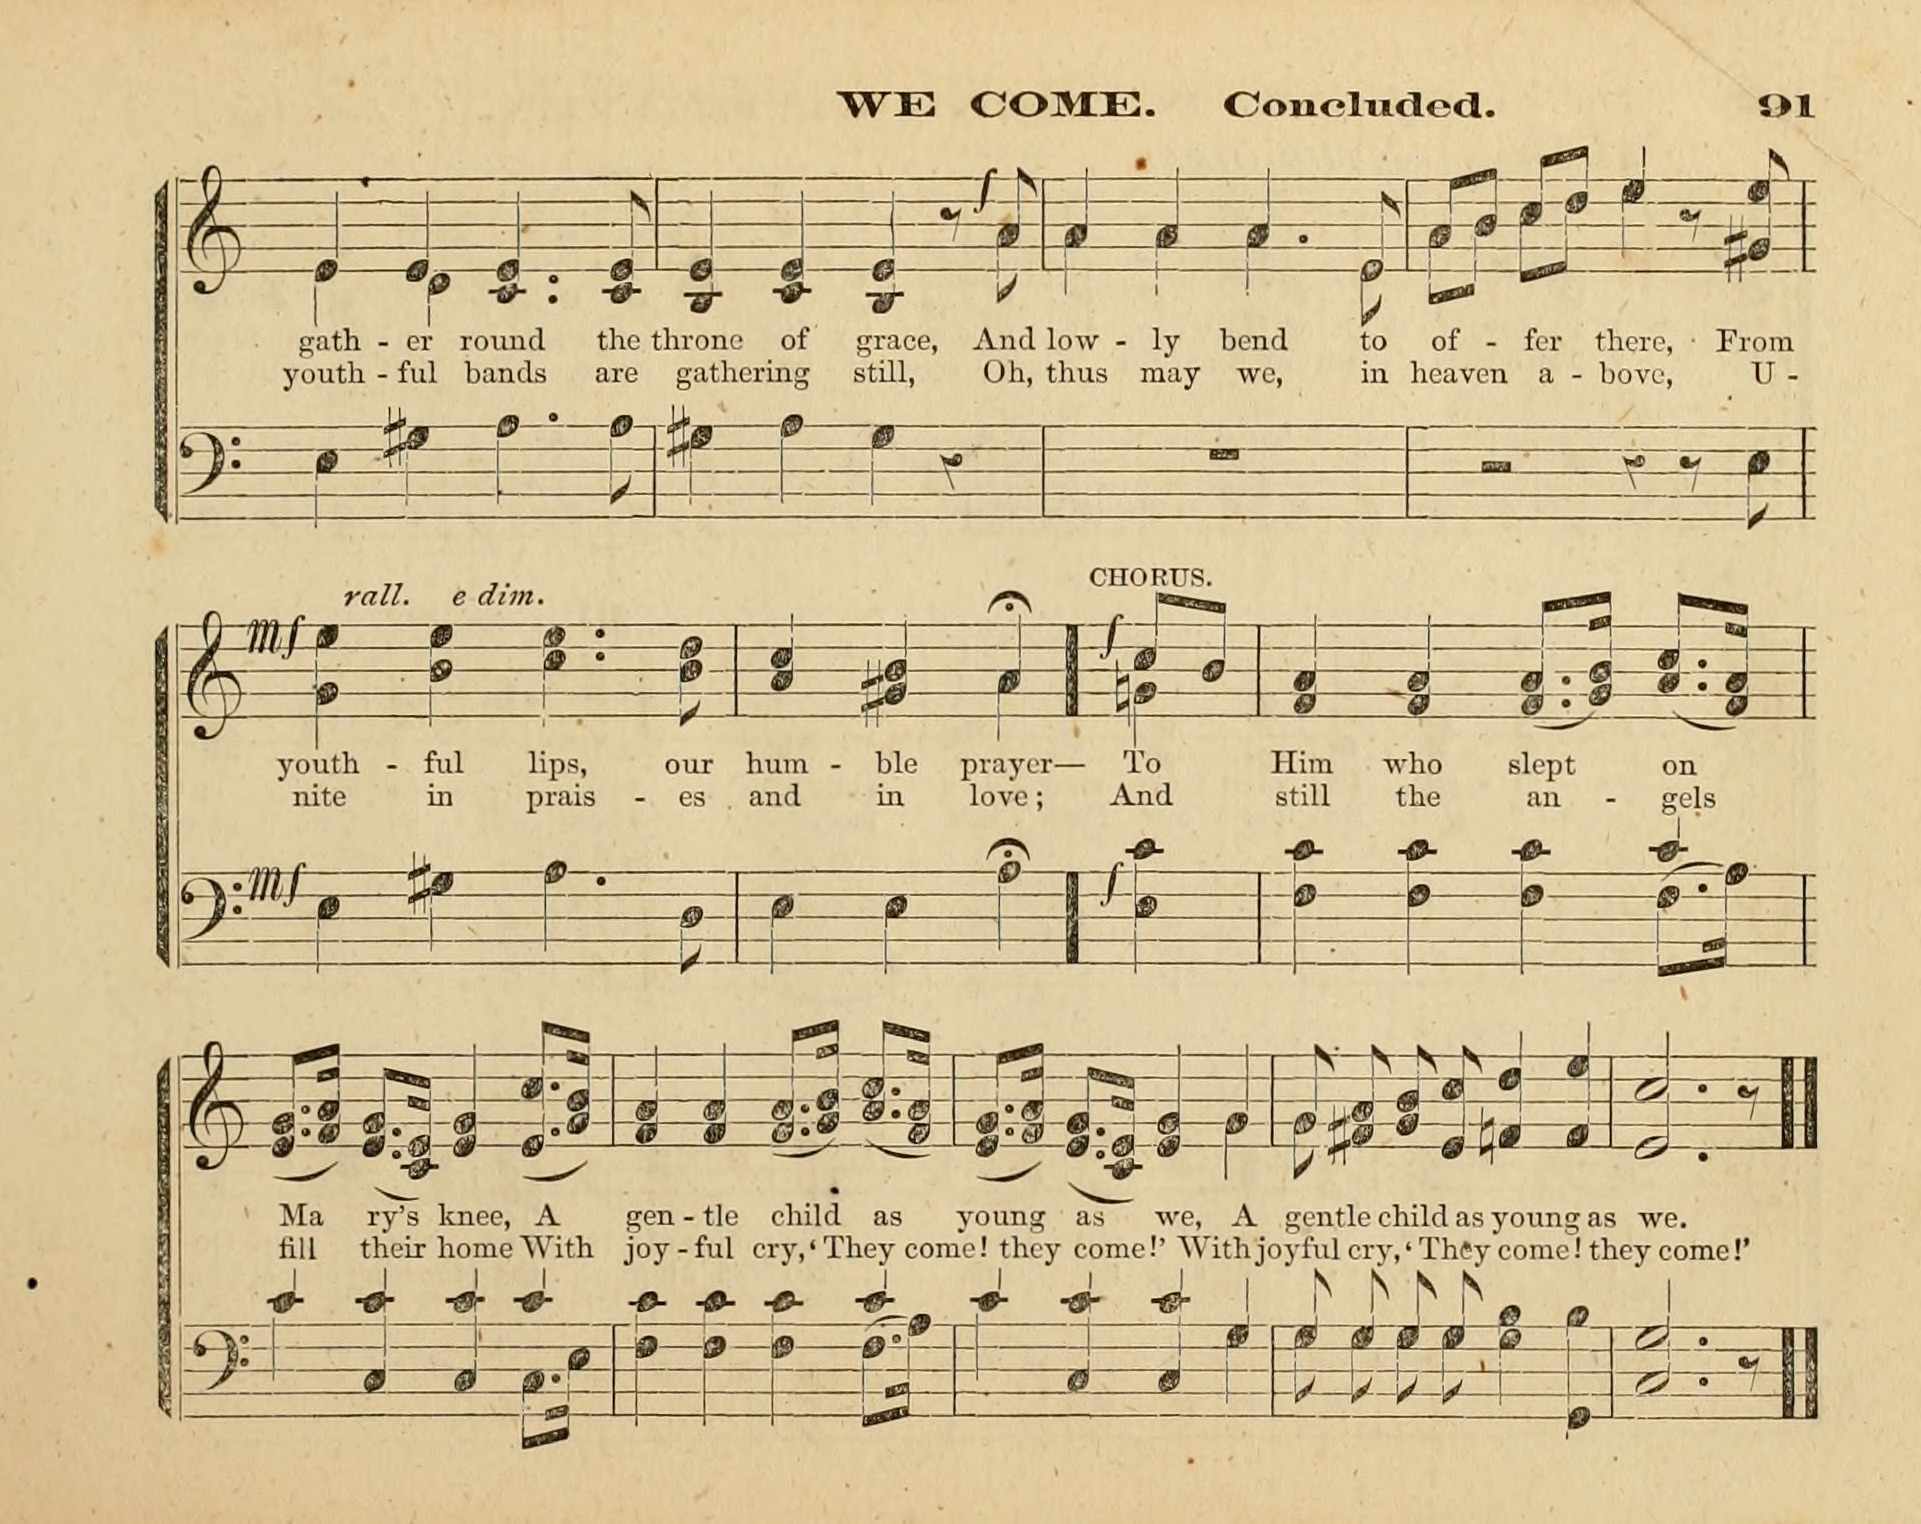 WE COME. Concluded. 91
f
gath - er round the throne of grace, And low - ly bend to of - fer there, From
youth - ful bands are gathering still, Oh, thus may we, in heaven a - bove, U -
rall. e dim. CHORUS.
mf f
youth - ful lips, our hum - ble prayer— To Him who slept on
nite in prais - es and in love; And still the an - gels
mf f
Ma ry's knee, A gen - tle child as young as we, A gentle child as young as we.
fill their home With joy - ful cry, ‘They come! they come!’ With joyful cry, ‘They come! they come!’